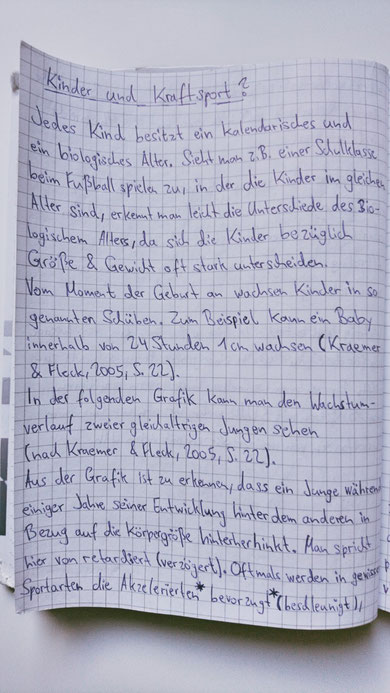 Kinder und Kraftsport?
Jedes Kind besitzt ein kalendarisches und
ein biologisches Alter. Sieht man z.B. einer Schulklasse
beim Fußball spielen zu, in der die Kinder im gleichen
Alter sind, erkennt man leicht die Unterschiede des Bio-
logischem Alters, da sich die Kinder bezüglich
Größe & Gewicht oft stark unterscheiden.
Vom Moment der Geburt an wachsen Kinder in so
genannten Schüben. Zum Beispiel kann ein Baby
innerhalb von 24 Stunden 1cm wachsen (Kraemer
& Fleck, 2005, S. 22).
In der folgenden Grafik kann man den Wachstum-
verlauf zweier gleichaltrigen Jungen sehen
(nach Kraemer & Fleck, 2005, S. 22).
Aus der Grafik ist zu erkennen, dass ein Junge während
einiger Jahre seiner Entwicklung hinter dem anderen in
Bezug auf die Körpergröße hinterherhinkt. Man spricht
hier von retardiert (verzögert). Oftmals werden in gewissen
Sportarten die Akzelerierten* bevorzugt *(beschleunigt),